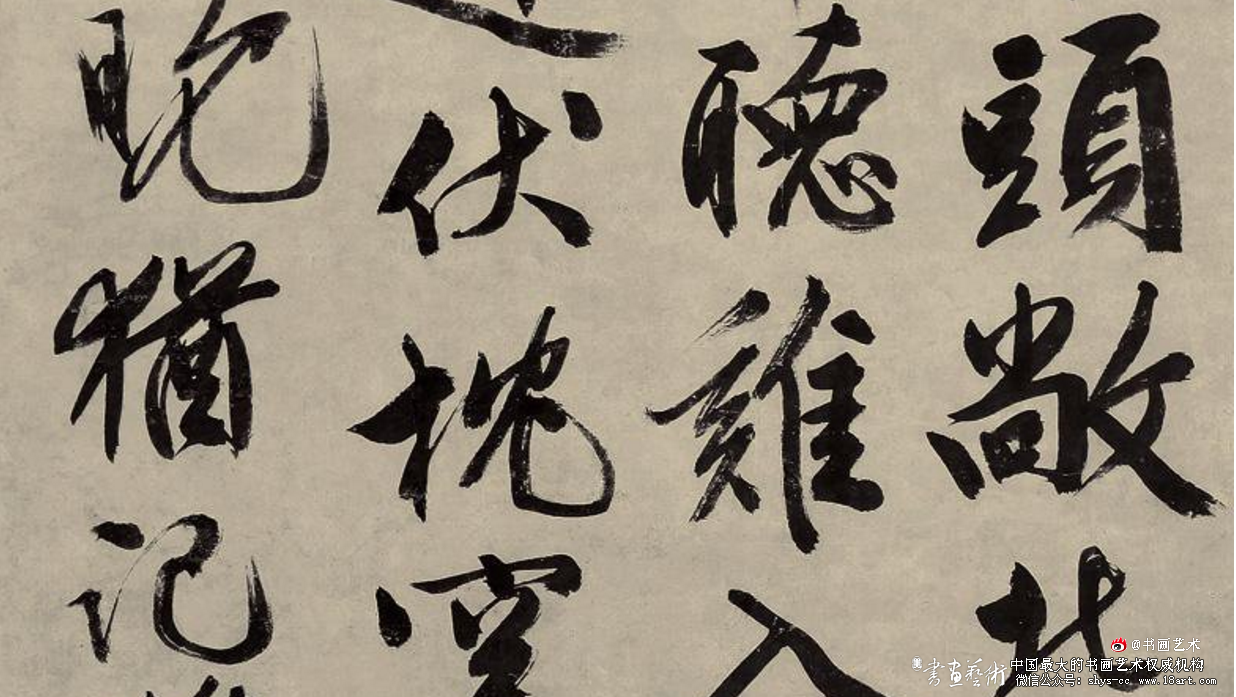 頭敞
聽雞入
伏枕空
猶記
@书画艺术
書画藝術
中国最大的书画艺术权威机构
微信公众号：shys-cc www.18art.com